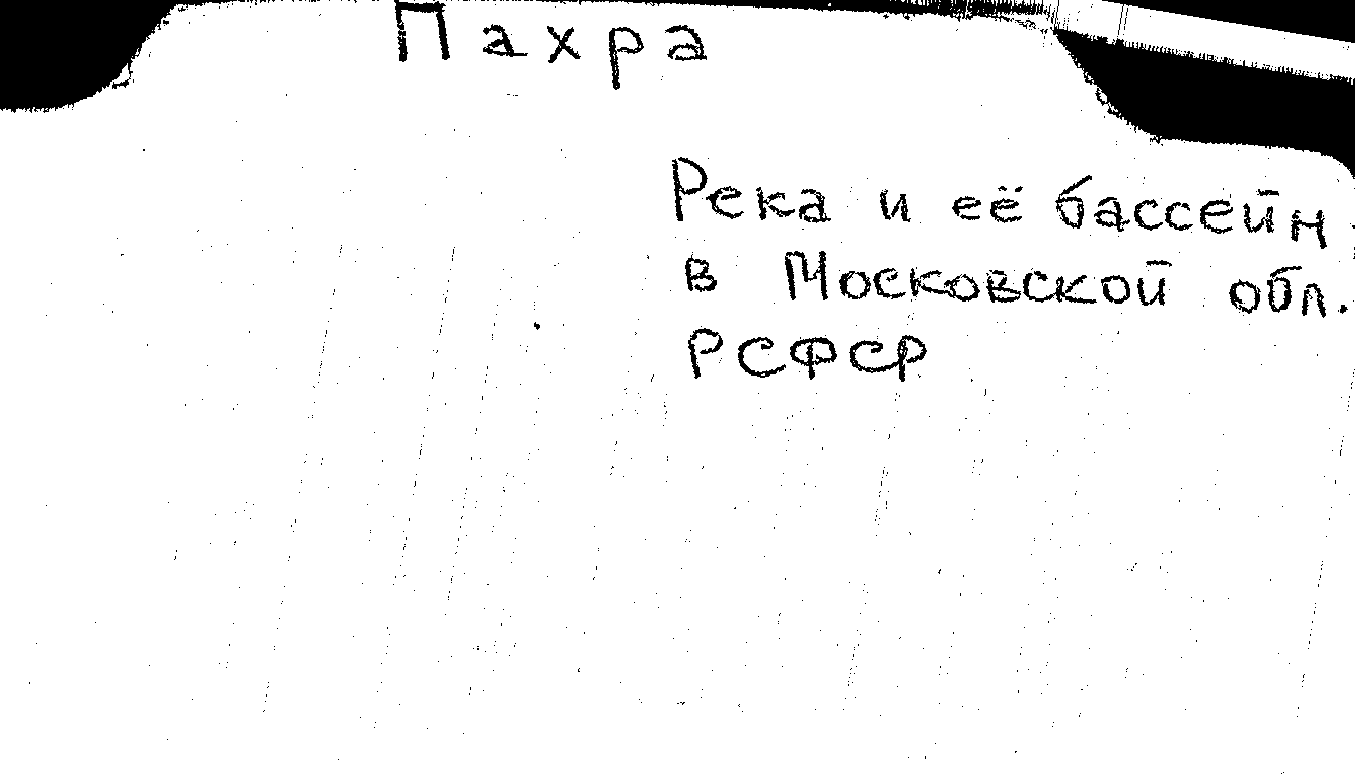 Пахра
Река и её бассейн
в Московской обл.
РСФСР